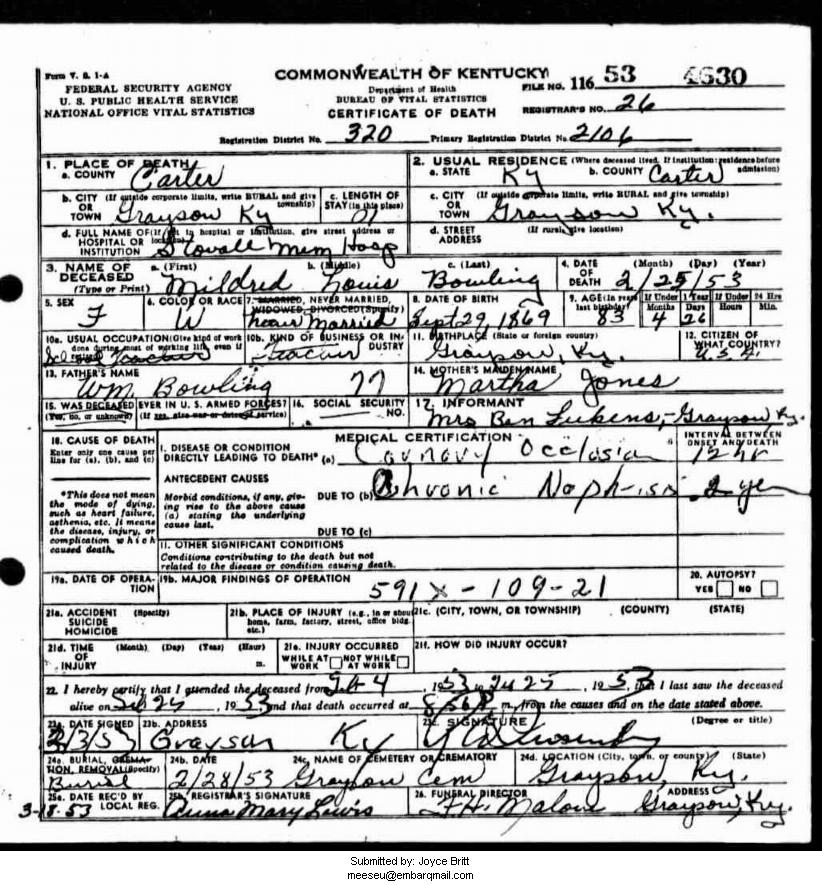 Form V. S. 1-A
COMMONWEALTH OF KENTUCKY
FILE NO. 116 53 4630
FEDERAL SECURITY AGENCY
U. S. PUBLIC HEALTH SERVICE
NATIONAL OFFICE VITAL STATISTICS
Department of Health
BUREAU OF VITAL STATISTICS
CERTIFICATE OF DEATH
REGISTRAR'S NO. 26
Registration District No. 320 Primary Registration District No. 2106
1. PLACE OF DEATH
a. COUNTY Carter
2. USUAL RESIDENCE (Where deceased lived. If institution: residence before admission)
a. STATE Ky b. COUNTY Carter
b. CITY (If outside corporate limits, write RURAL and give township) OR TOWN Grayson Ky
c. LENGTH OF STAY (in this place)
c. CITY (If outside corporate limits, write RURAL and give township) OR TOWN Grayson Ky.
d. FULL NAME OF (If not in hospital or institution, give street address or location) HOSPITAL OR INSTITUTION Stovall Mem Hosp
d. STREET ADDRESS (If rural, give location)
3. NAME OF DECEASED (Type or Print)
a. (First) Mildred b. (Middle) Louis c. (Last) Bowling
4. DATE OF DEATH (Month) (Day) (Year) 2/25/53
5. SEX F
6. COLOR OR RACE W
7. MARRIED, NEVER MARRIED, WIDOWED, DIVORCED (Specify) never married
8. DATE OF BIRTH Sept 29, 1869
9. AGE (In years last birthday) 83 If Under 1 Year Months 4 Days 26 If Under 24 Hrs Hours Min.
10a. USUAL OCCUPATION (Give kind of work done during most of working life, even if retired) School Teacher
10b. KIND OF BUSINESS OR INDUSTRY Teacher
11. BIRTHPLACE (State or foreign country) Grayson, Ky.
12. CITIZEN OF WHAT COUNTRY? U.S.A.
13. FATHER'S NAME Wm Bowling 77
14. MOTHER'S MAIDEN NAME Martha Jones
15. WAS DECEASED EVER IN U. S. ARMED FORCES? (Yes, no, or unknown) (If yes, give war or dates of service)
16. SOCIAL SECURITY NO.
17. INFORMANT Mrs Ben Lukens, - Grayson Ky.
18. CAUSE OF DEATH
Enter only one cause per line for (a), (b), and (c)
MEDICAL CERTIFICATION
INTERVAL BETWEEN ONSET AND DEATH
1. DISEASE OR CONDITION DIRECTLY LEADING TO DEATH* (a) Cornary Occlosian 12 hr
*This does not mean the mode of dying, such as heart failure, asthenia, etc. It means the disease, injury, or complication which caused death.
ANTECEDENT CAUSES
Morbid conditions, if any, giving rise to the above cause (a) stating the underlying cause last.
DUE TO (b) Chronic Nephrisis 2 yer
DUE TO (c)
11. OTHER SIGNIFICANT CONDITIONS
Conditions contributing to the death but not related to the disease or condition causing death.
19a. DATE OF OPERATION
19b. MAJOR FINDINGS OF OPERATION
591X-109-21
20. AUTOPSY?
YES NO
21a. ACCIDENT SUICIDE HOMICIDE (Specify)
21b. PLACE OF INJURY (e.g., in or about home, farm, factory, street, office bldg. etc.)
21c. (CITY, TOWN, OR TOWNSHIP) (COUNTY) (STATE)
21d. TIME OF INJURY (Month) (Day) (Year) (Hour) m.
21e. INJURY OCCURRED WHILE AT WORK NOT WHILE AT WORK
21f. HOW DID INJURY OCCUR?
22. I hereby certify that I attended the deceased from Feb 4, 1953 to 25, 1953, that I last saw the deceased
alive on 25, 1953 and that death occurred at m., from the causes and on the date stated above.
23a. DATE SIGNED 23b. ADDRESS Grayson Ky 23c. SIGNATURE (Degree or title)
24a. BURIAL, CREMATION, REMOVAL (Specify) Burial
24b. DATE 2/28/53
24c. NAME OF CEMETERY OR CREMATORY Grayson Cem
24d. LOCATION (City, town, or county) (State) Grayson, Ky.
25a. DATE REC'D BY LOCAL REG. 3-18-53
25b. REGISTRAR'S SIGNATURE Anna Mary Lewis
26. FUNERAL DIRECTOR F.H. Malone ADDRESS Grayson, Ky.
Submitted by: Joyce Britt
meeseu@embarqmail.com